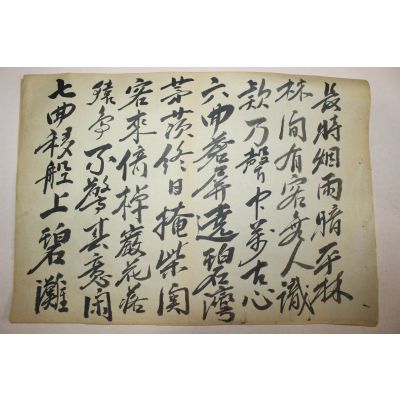 長時烟雨暗平林
林間有客無人識
欸乃聲中萬古心
六曲蒼屏遶碧灣
茅茨終日掩柴関
客來倚棹巖花落
猿鳥不驚春意闲
七曲移船上碧灘